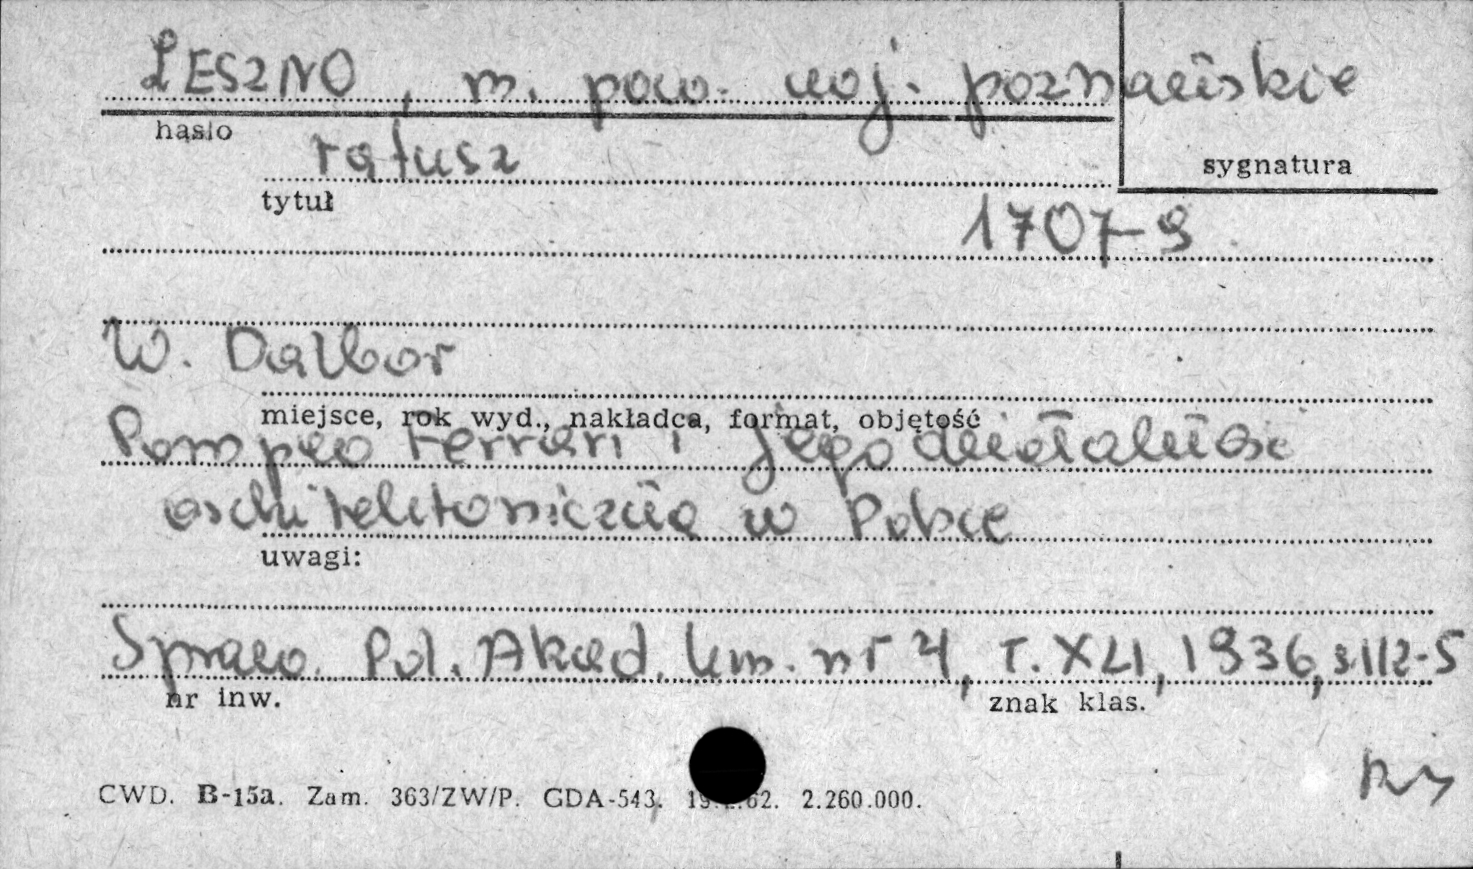 LESZNO, m. pow. woj. poznańskie
hasło
ratusz
sygnatura
tytuł
1707-9
W. Dalbor
miejsce, rok wyd., nakładca, format, objętość
Pompeo Ferrari i jego działalność
architektoniczna w Polsce
uwagi:
Spraw. Pol. Akad. Um. nr 4, T. XLI, 1936, s. 112-5
nr inw.
znak klas.
CWD. B-15a. Zam. 363/ZW/P. GDA-543. 62. 2.260.000.